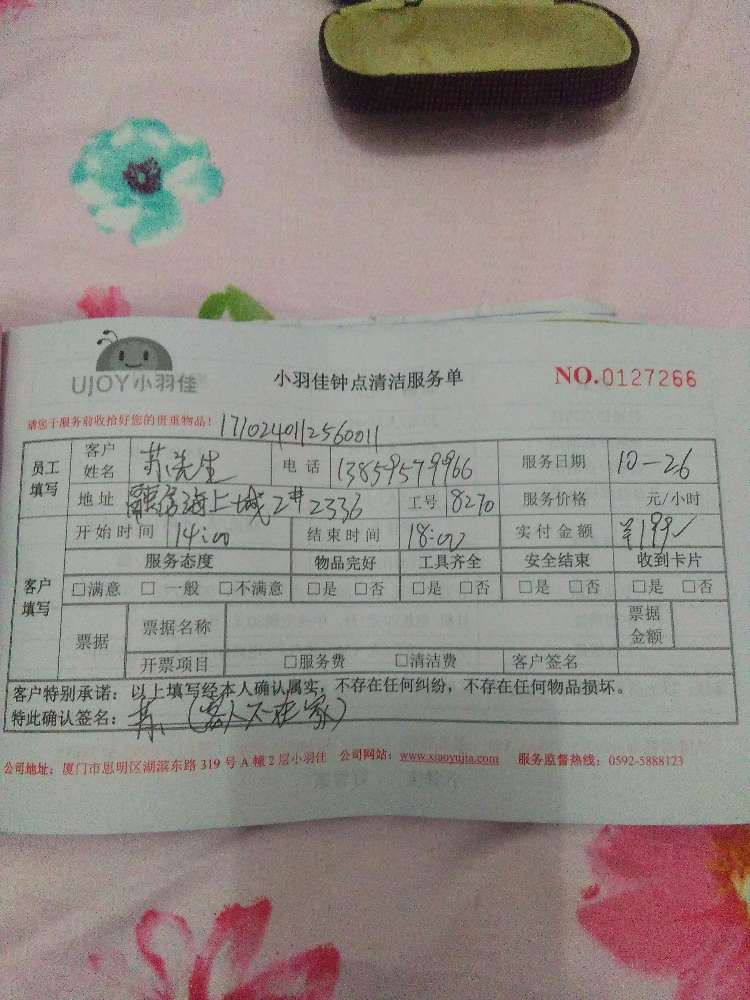 UJOY小羽佳
小羽佳钟点清洁服务单 NO.0127266
请您于服务前收拾好您的贵重物品! 1710240112560011
员工填写 客户姓名 苏先生 电话 13859579966 服务日期 10-26
地址 融信海上城2#2336 工号 8270 服务价格 元/小时
客户填写 开始时间 14:00 结束时间 18:00 实付金额 ¥199
服务态度 物品完好 工具齐全 安全结束 收到卡片
□满意 □一般 □不满意 □是 □否 □是 □否 □是 □否 □是 □否
票据 票据名称 票据金额
开票项目 □服务费 □清洁费 客户签名
客户特别承诺:以上填写经本人确认属实,不存在任何纠纷,不存在任何物品损坏。
特此确认签名: 苏 (客人不在家)
公司地址:厦门市思明区湖滨东路319号A幢2层小羽佳 公司网站:www.xiaoyujia.com 服务监督热线:0592-5888123